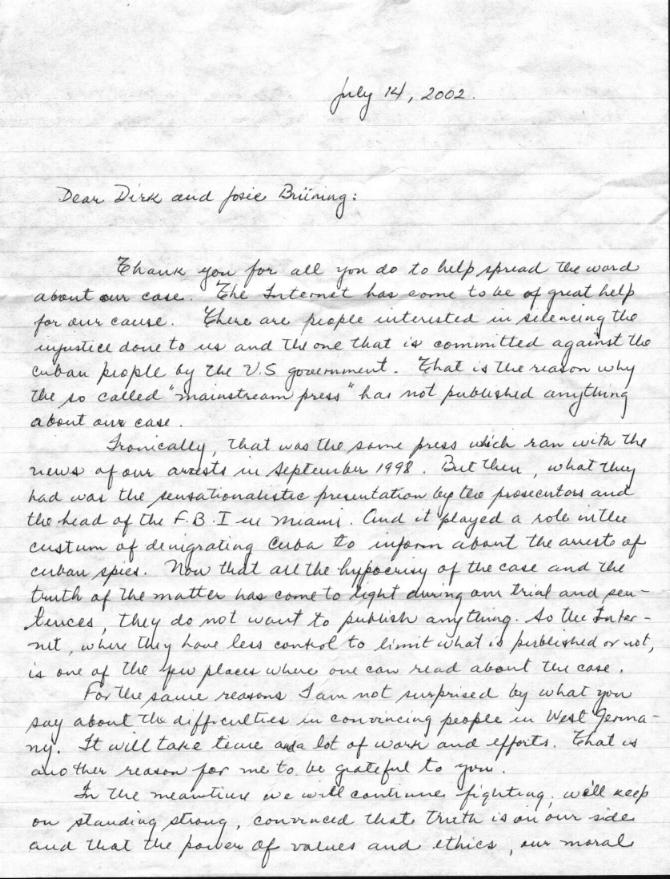 July 14, 2002.
Dear Dirk and Josie Brüning:
Thank you for all you do to help spread the word
about our case. The Internet has come to be of great help
for our cause. There are people interested in silencing the
injustice done to us and the one that is committed against the
cuban people by the U.S government. That is the reason why
the so called "mainstream press" has not published anything
about our case.
Ironically, that was the same press which ran with the
news of our arrests in September 1998. But then, what they
had was the sensationalistic presentation by the prosecutors and
the head of the F.B.I in Miami. And it played a role in the
custum of denigrating Cuba to inform about the arrest of
cuban spies. Now that all the hypocrisy of the case and the
truth of the matter has come to light during our trial and sen-
tences, they do not want to publish anything. So the Inter-
net, where they have less control to limit what is published or not,
is one of the few places where one can read about the case.
For the same reasons I am not surprised by what you
say about the difficulties in convincing people in West Germa-
ny. It will take time and a lot of work and efforts. That is
another reason for me to be grateful to you.
In the meantime we will continue fighting, we'll keep
on standing strong, convinced that truth is on our side
and that the power of values and ethics, our moral